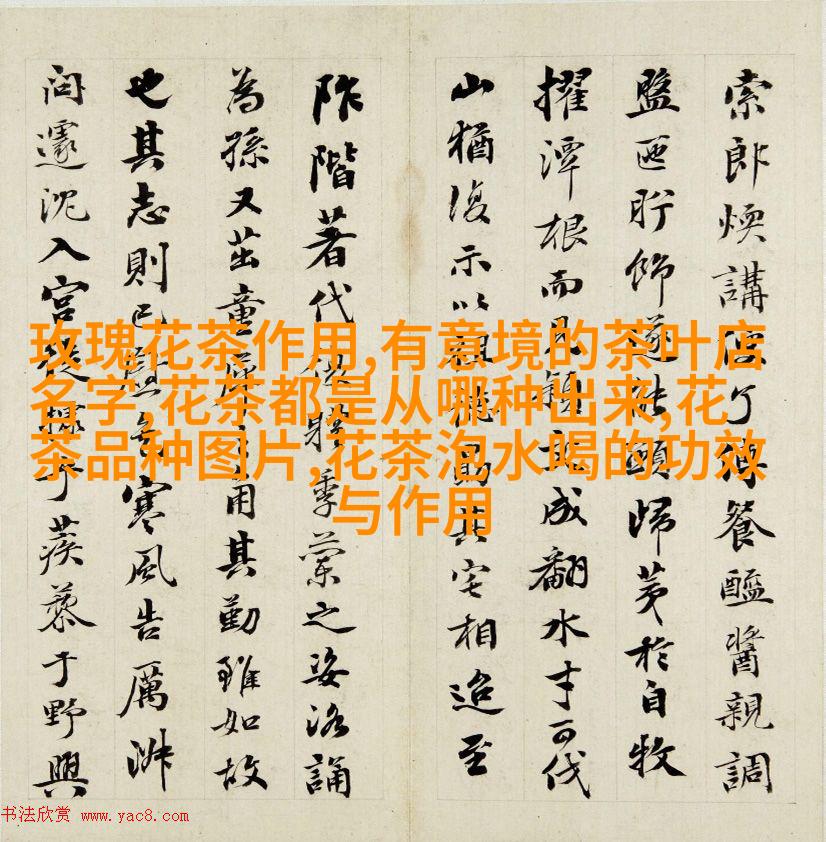 索郎煥講餐醯醬親調
盥匜飾遂頤歸荑於自牧
擢潭根而成翻水才可伐
山猶復示以親其宅相迨至
阼階著代季蘭之姿洛誦
為孫又茁童用其勤雖如故
也其志則已寒風告厲
问遽沈入宮據于蒺藜于野與
玫瑰花茶作用,有意境的茶叶店
名字,花茶都是从哪种出来,花
茶品种图片,花茶泡水喝的功效
与作用
书法欣赏 www.yac8.com